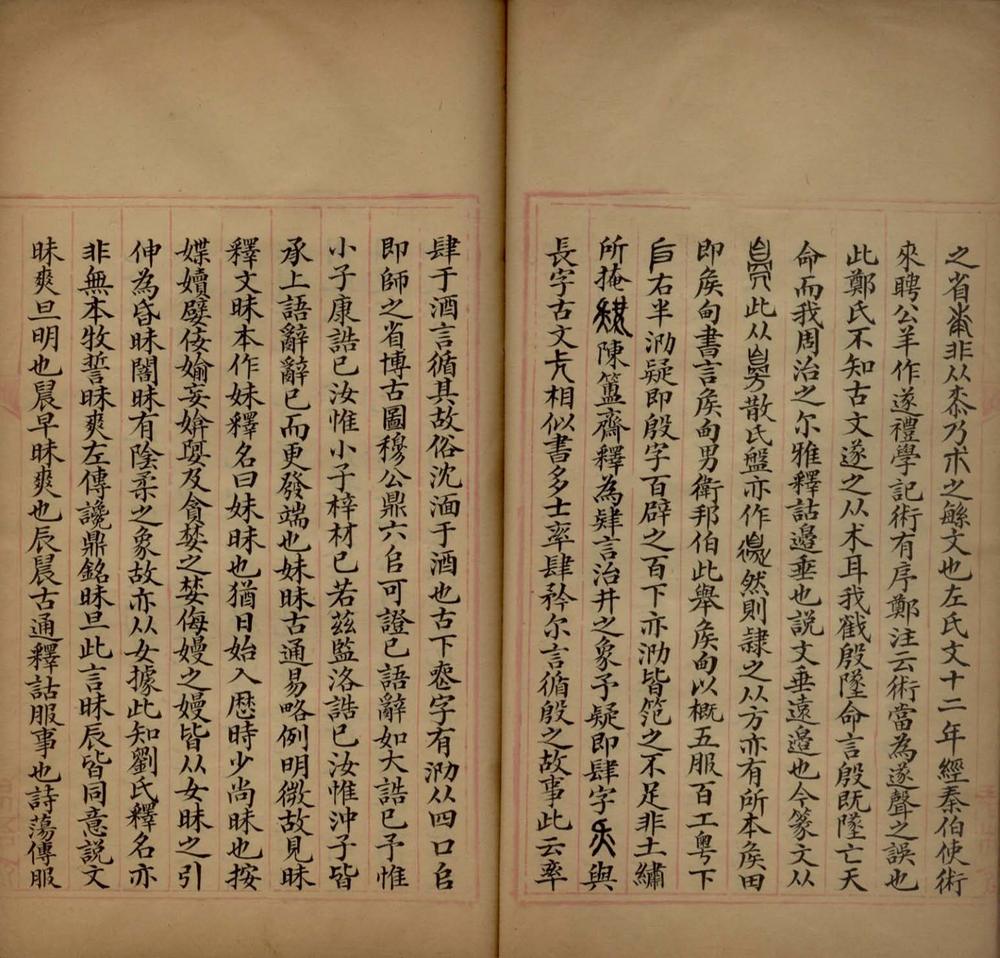 之省非从桼乃朮之緐文也左氏文十二年經秦伯使術
來聘公羊作遂禮學記術有序鄭注云術當為遂聲之誤也
此鄭氏不知古文遂之从朮耳我戳殷墜命言殷既墜亡天
命而我周治之尔雅釋詁邊垂也說文垂遠邉也今篆文从
此从散氏盤亦作然則隷之从方亦有所本矦田
即矦甸書言矦甸男衛邦伯此舉矦甸以概五服百工粤下
𠂤右半泐疑即殷字百辟之百下亦泐皆笵之不足非土繡
所掩陳簠齋釋為肄言治井之象予疑即肆字與
長字古文相似書多士率肆矜尔言循殷之故事此云率
肆于酒言循其故俗沈湎于酒也古下字有泐从四口𠂤
即師之省博古圖穆公鼎六𠂤可證巳語辭如大誥巳予惟
小子康誥巳汝惟小子梓材巳若茲監洛誥巳汝惟沖子皆
承上語辭辭巳而更發端也妹昧古通易略例明微故見昧
釋文昧本作妹釋名曰妹昧也猶日始入歷時少尚昧也按
媟嬻嬖佞媮妄姘嫛及貪婪之婪侮嫚之嫚皆从女昧之引
伸為昏昧闇昧有陰柔之象故亦从女據此知劉氏釋名亦
非無本牧誓昧爽左傳讒鼎銘昧旦此言昧辰皆同意說文
昧爽旦明也晨早昧爽也辰晨古通釋詁服事也詩蕩傳服